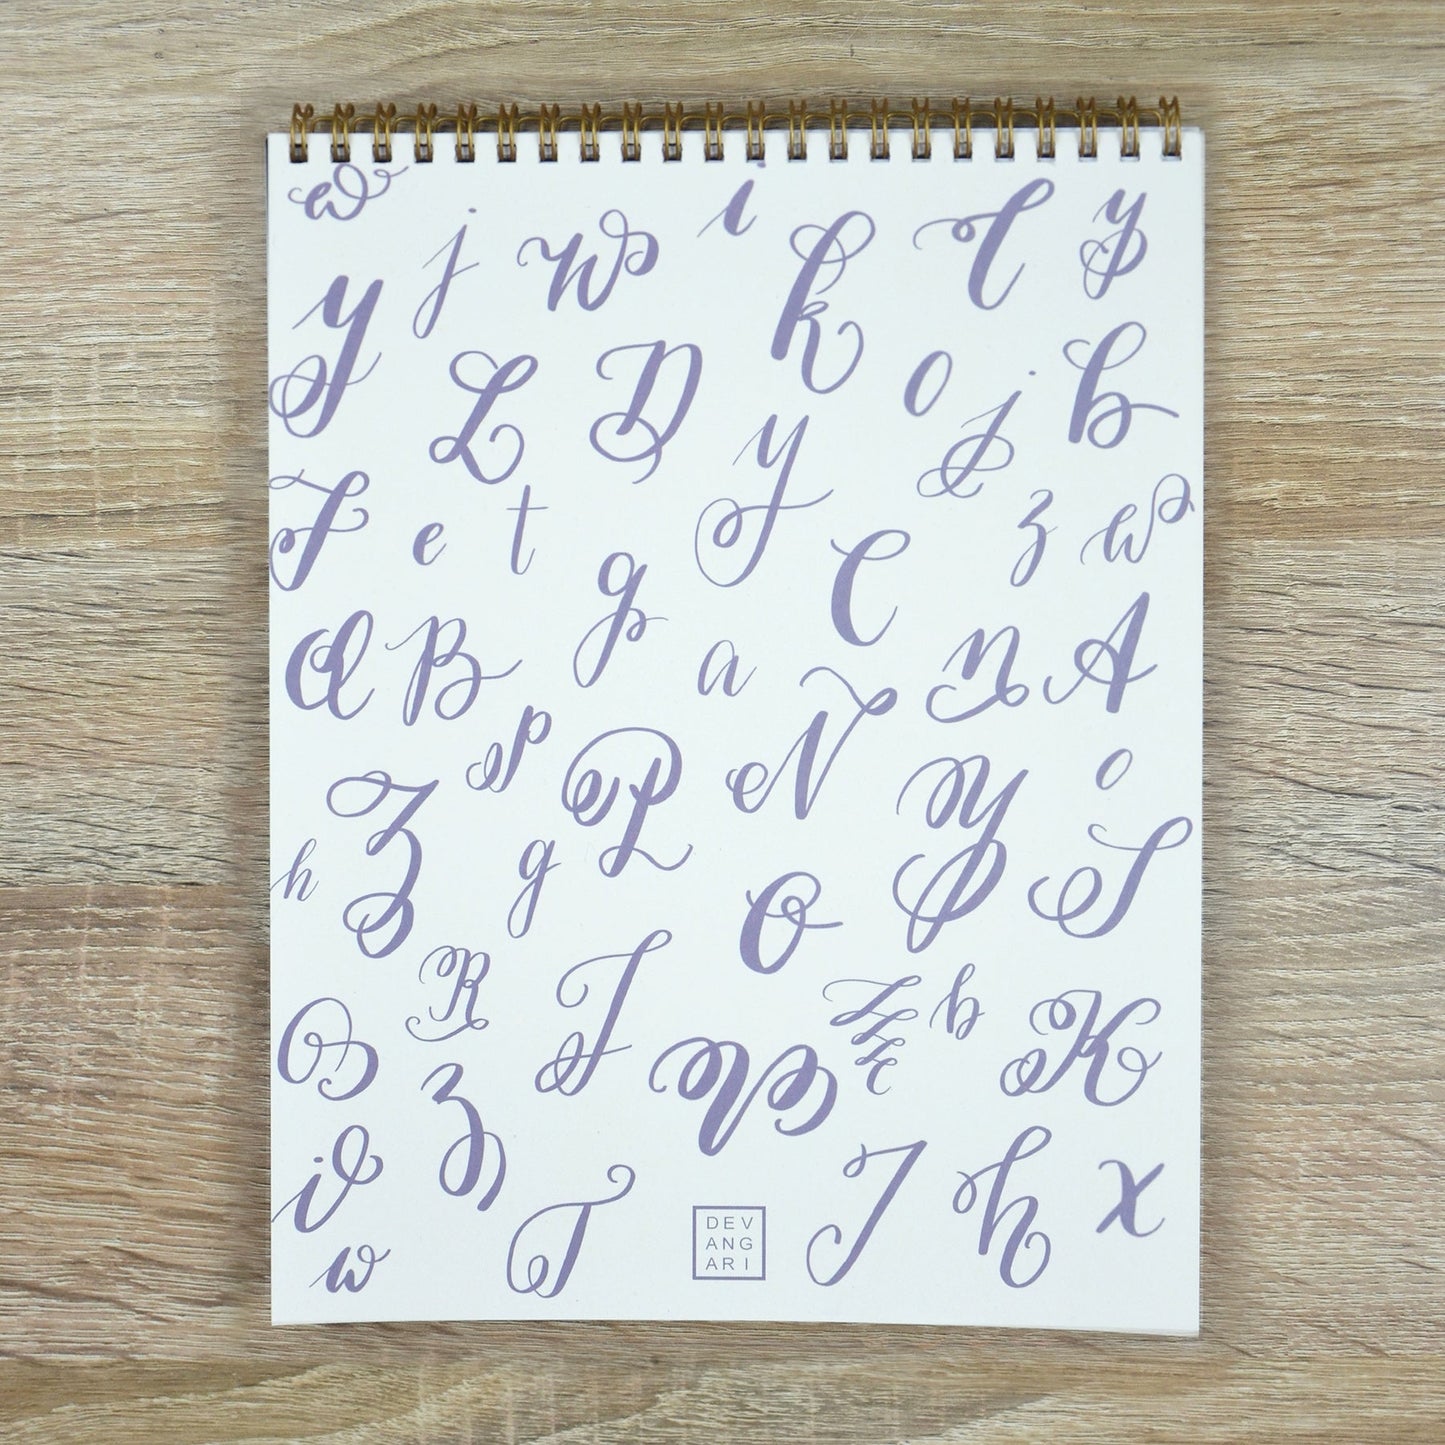 w i
j w k T y
y
L D o j b
y
F e t z w
g C
a B a n A
p N
Z P Y o
h g O S
R
T b
O W K
Z
i J h x
w T
DEV
ANG
ARI